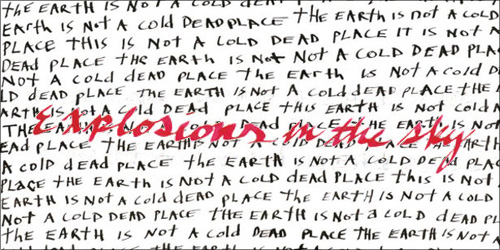 THE EARTH IS NOT A COLD DEAD
EARTH IS NOT A COLD DEAD PLACE THE EARTH IS NOT A COLD
PLACE THIS IS NOT A COLD DEAD PLACE IT IS NOT A
DEAD PLACE THE EARTH IS NOT A COLD DEAD PLA
NOT A COLD DEAD PLACE THE EARTH IS NOT A COLD D
LD DEAD PLACE THE EARTH IS NOT A COLD DEAD PLACE THE
ARTH IS NOT A COLD DEAD PLACE THIS EARTH IS NOT COLD
Explosions in the sky
EAD PLACE THE EARTH IS NOT A COLD DEAD PLACE THE EARTH
A COLD DEAD PLACE THE EARTH IS NOT A COLD DEAD PLA
PLACE THE EARTH IS NOT A COLD DEAD PLACE THIS IS NOT
EARTH IS NOT A COLD DEAD PLACE THE EARTH IS NOT A COLD
NOT A COLD DEAD PLACE THE EARTH IS NOT A COLD DEAD PL
DEAD PLACE THE EARTH IS NOT A COLD DEAD PLACE THE EARTH IS NOT